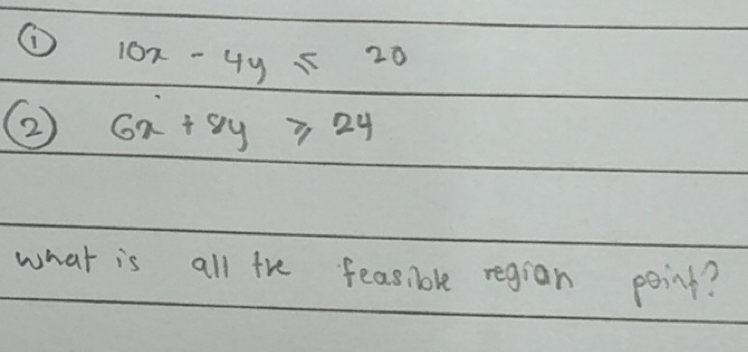 ① 10x - 4y ≤ 20
② 6x + 8y ≥ 24
what is all the feasible region point?